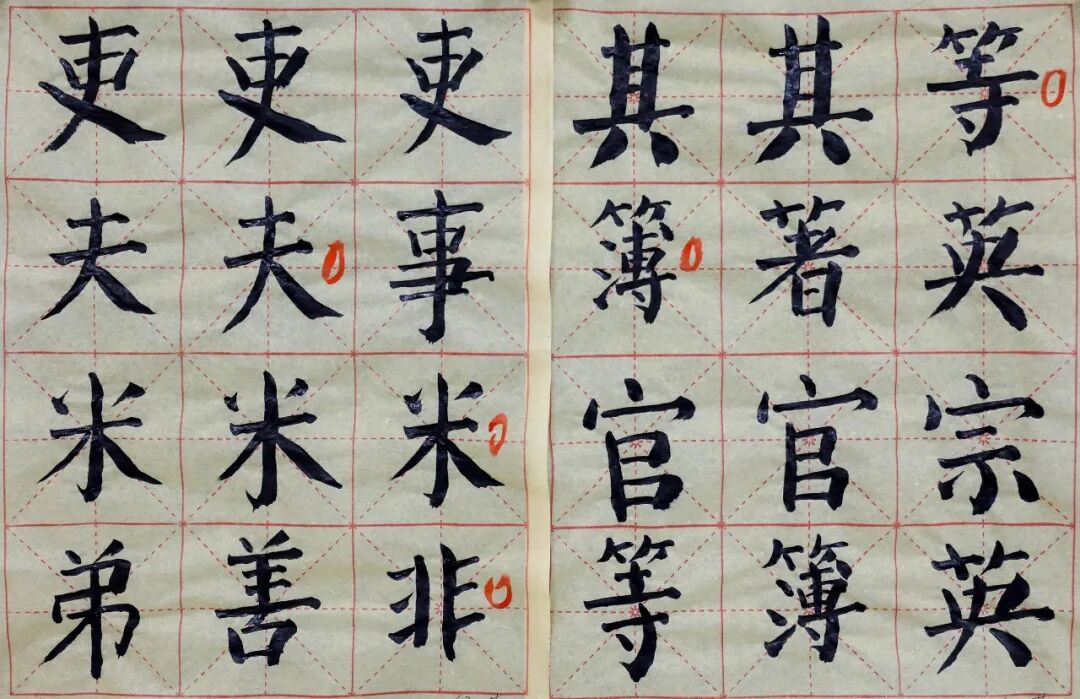 吏吏吏
夫夫事
米米米
弟善非
其其等
簿著英
官官宗
等簿英